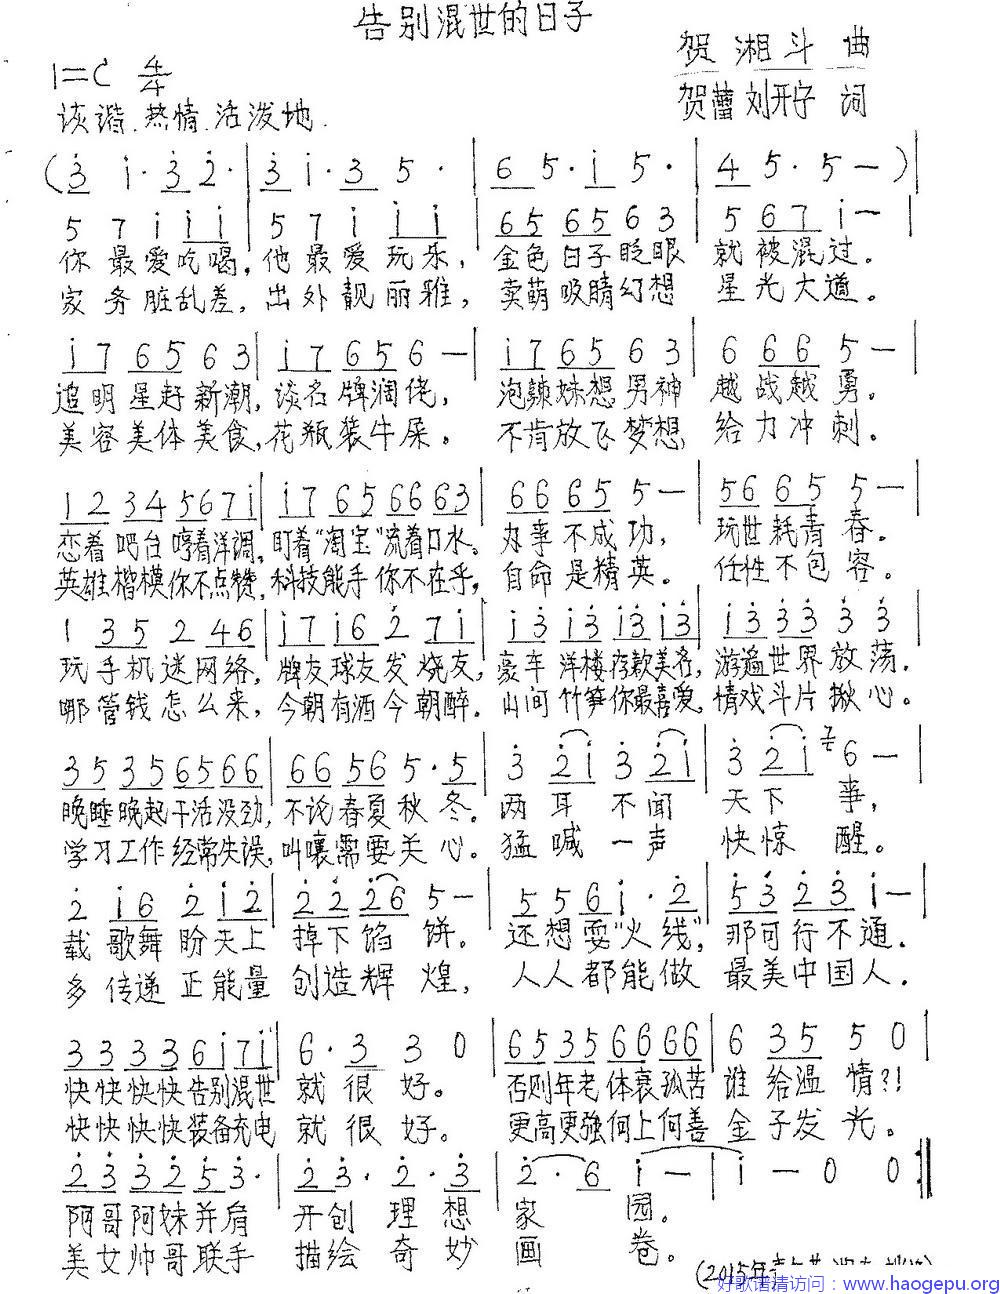 告别混世的日子
贺湘斗 曲
1=C 4/4
贺蕾 刘开宇 词
诙谐.热情.活泼地.
(3 i·3 2·|3 i·3 5·|6 5·i 5·|4 5·5 —)|
5 7 i i i|5 7 i i i|65 65 6 3|5 67 i —|
你最爱吃喝,他最爱玩乐,金色日子眨眼就被混过。
家务脏乱差,出外靓丽雅,卖萌吸睛幻想星光大道。
i7 65 6 3|i7 65 6 —|i7 65 6 3|6 66 5 —|
追明星赶新潮,谈名牌润佬,泡辣妹想男神越战越勇。
美容美体美食,花瓶装牛屎。不肯放飞梦想,给力冲刺。
12 34 56 7i|i7 65 66 63|66 65 5 —|56 65 5 —|
恋着吧台哼着洋调,盯着"淘宝"流着口水。办事不成功,玩世耗青春。
英雄楷模你不点赞,科技能手你不在乎,自命是精英。任性不包容。
1 35 2 46|i7 i6 2 7i|i3 i3 i3 i3|i3 33 3 3|
玩手机迷网络,牌友球友发烧友,豪车洋楼存款美名,游遍世界放荡.
哪管钱怎么来,今朝有酒今朝醉.山间竹笋你最喜爱,情戏斗片揪心。
35 35 65 66|66 56 5·5|3 2i 3 2i|3 2i 6 —|
晚睡晚起干活没劲,不论春夏秋冬。两耳不闻天下事,
学习工作经常失误,叫嚷需要关心。猛喊一声快惊醒。
2 i6 2 i2|22 26 5 —|5 5 6 i·2|53 23 i —|
载歌舞盼天上掉下馅饼。还想耍"火线",那可行不通.
多传递正能量创造辉煌,人人都能做最美中国人.
33 33 6i 7i|6·3 3 0|65 35 66 66|6 35 5 0|
快快快快告别混世就很好。否则年老体衰孤苦谁给温情?!
快快快快装备充电就很好。更高更强何上何善金子发光。
23 32 53·|23·2·3|2·6 i —|i — 0 0:‖
阿哥阿妹并肩开创理想家园。
美女帅哥联手描绘奇妙画卷。
(2015年
好歌谱请访问：www.haogepu.org